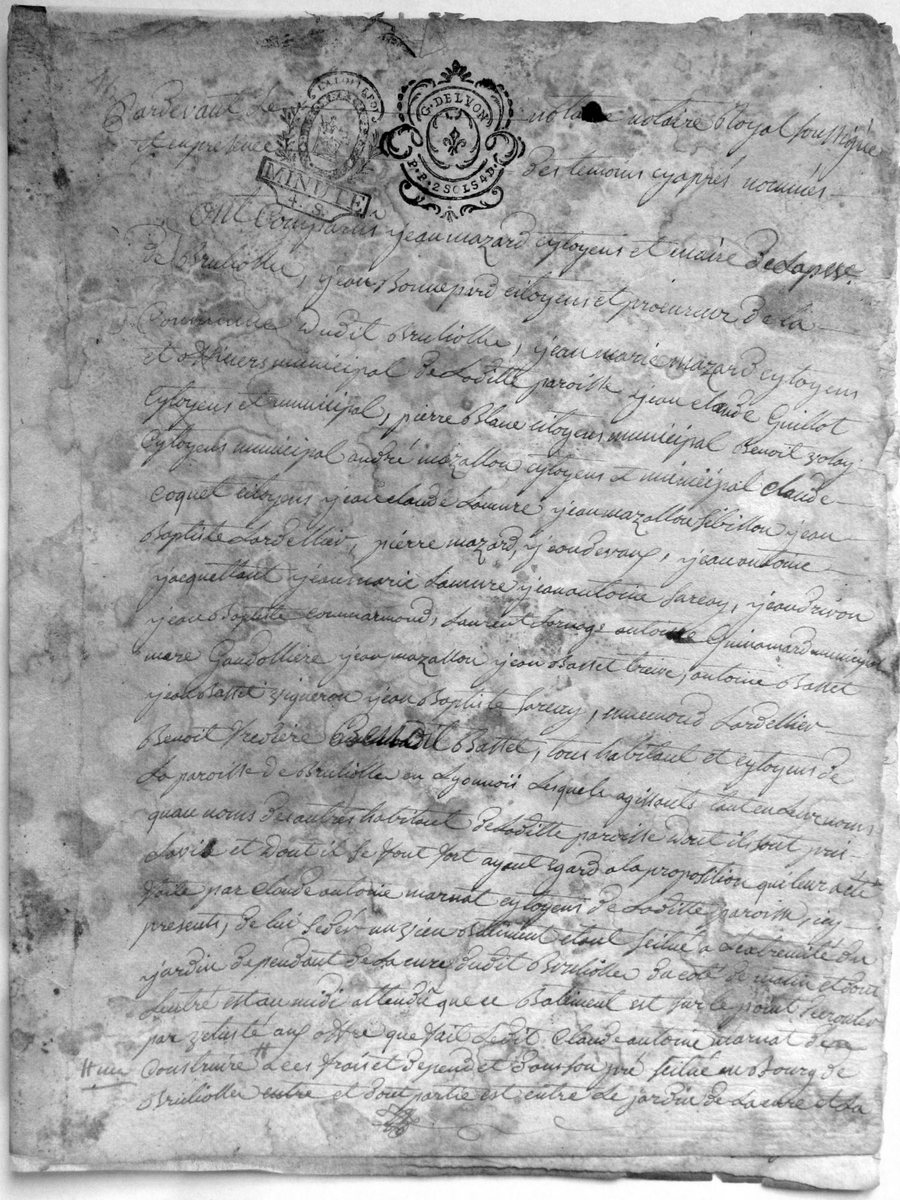 LA LOI LE ROY
G. DE LYON
P. P. 2 SOLS 4 D.
MINUTE
4. S.
Pardevant Le notaire Royal soussignée
Et en presence Des temoins cy apres nommés
Ont Comparus jean mazard cytoyens et maire De la psse
De Brulliolle, jean Bonnepard citoyens et procureur de la
Commune Dudit Brulliolle, jean marie mazard cytoyens
et officiers municipal De Laditte paroisse jean claude Guillot
cytoyens et municipal, pierre Blanc citoyens municipal Benoit
cytoyens municipal andré mazallon cytoyens et municipal claude
coquet citoyens jean claude Lamure jean mazallon Sébillon jean
Baptiste Lardellier, pierre mazard, jean devaux, jean antoine
jacquettant jean marie Lamure jean antoine jean drivon
jean Baptiste commarmond, Laurent antoine Guinamard municipal
mare Gaudollière jean mazallon jean Basset antoine Basset
jean Basset vigneron jean Baptiste Lardellier
Benoit Basset, tous habitant et cytoyens de
La paroisse de Brulliolle en Lyonnois Lesquels agissants tant en Leurs noms
quau noms des autres habitant de Laditte paroisse dont ils ont pris
Lavis et dont il se font fort ayant Egard a la proposition qui leur a été
faite par claude antoine marnat cytoyens de Laditte paroisse, icy
presents, de lui ceder un Batiment etant scitué a Lextremité du
jardin dependant de La cure dudit Brulliolle de matin et dont
Lentré est au midi attendu que ce Batiment est sur le point
par vetusté aux offre que fait Ledit Claude antoine marnat de
Construire # a ses frais et depend et dans son pré scitué au Bourg de
# une
Brulliolle entre et dont partie est entre Le jardin de La cure et La